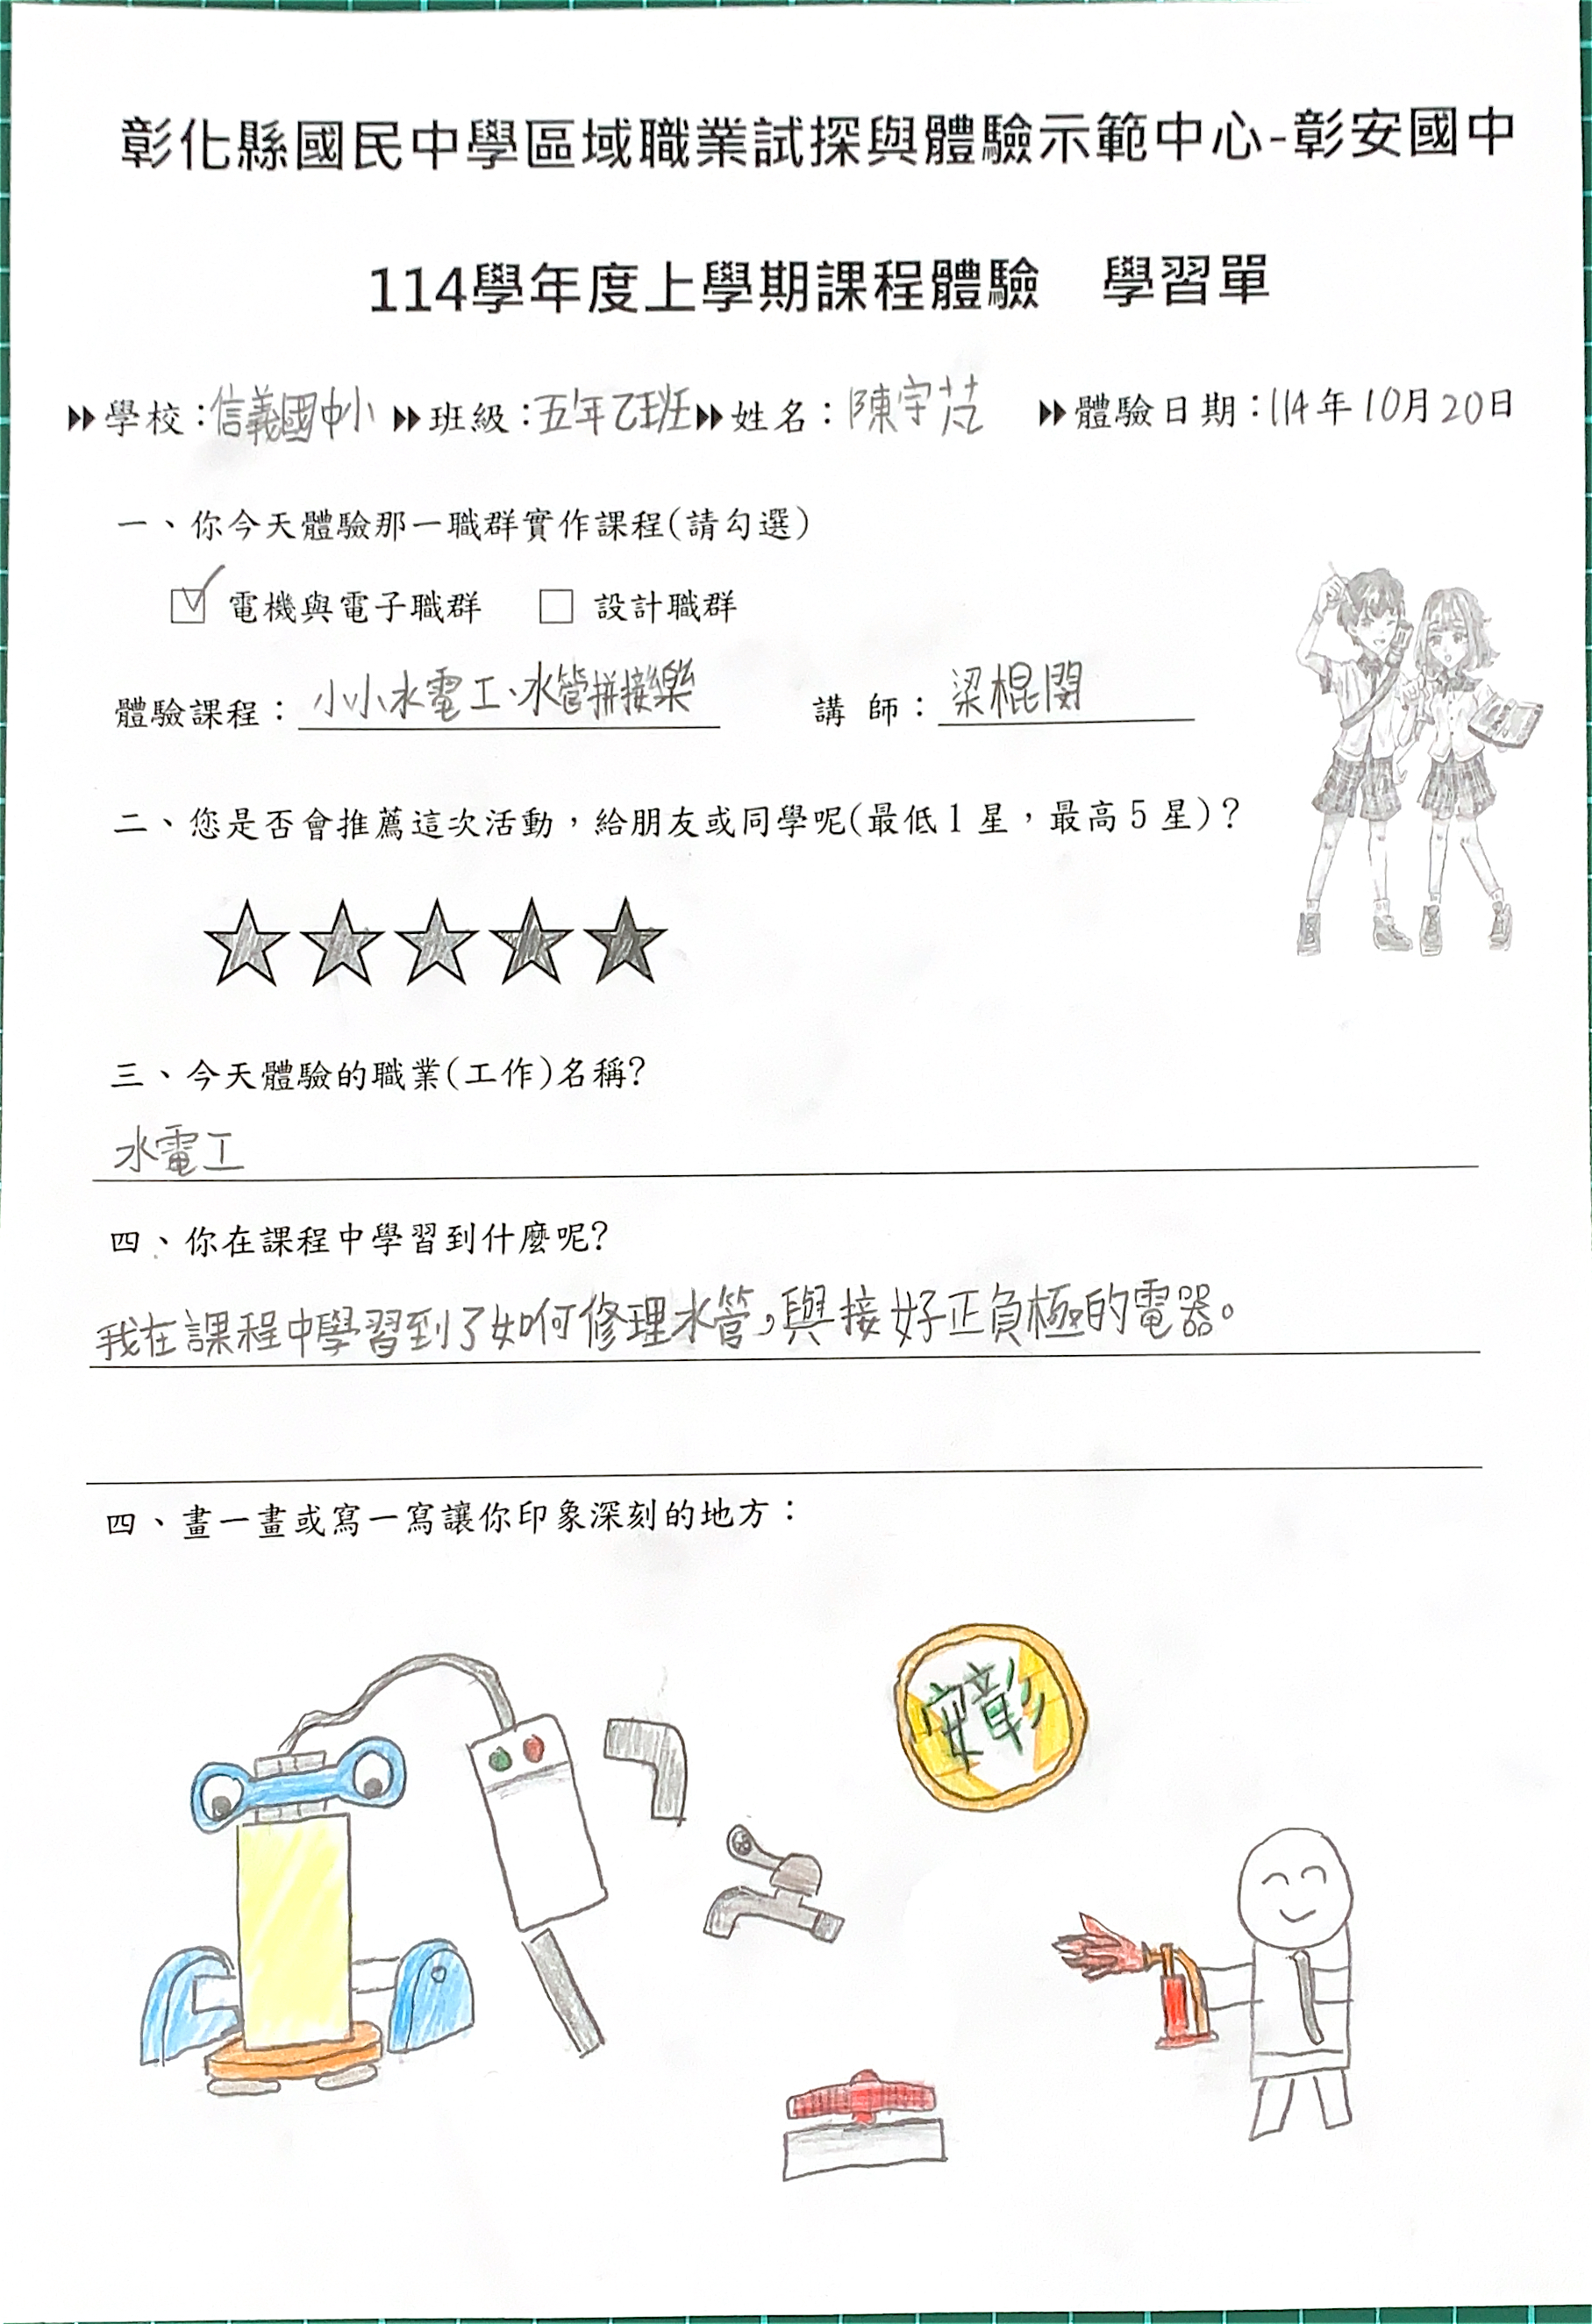 彰化縣國民中學區域職業試探與體驗示範中心-彰安國中
114學年度上學期課程體驗 學習單
學校:信義國中小 班級:五年乙班 姓名:陳宇芃 體驗日期:114年10月20日
一、你今天體驗那一職群實作課程(請勾選)
☑ 電機與電子職群 □ 設計職群
體驗課程:小小水電工、水管拼接樂 講 師:梁棍閔
二、您是否會推薦這次活動,給朋友或同學呢(最低1星,最高5星)?
三、今天體驗的職業(工作)名稱?
水電工
四、你在課程中學習到什麼呢?
我在課程中學習到了如何修理水管,與接好正負極的電器。
四、畫一畫或寫一寫讓你印象深刻的地方:
安彰